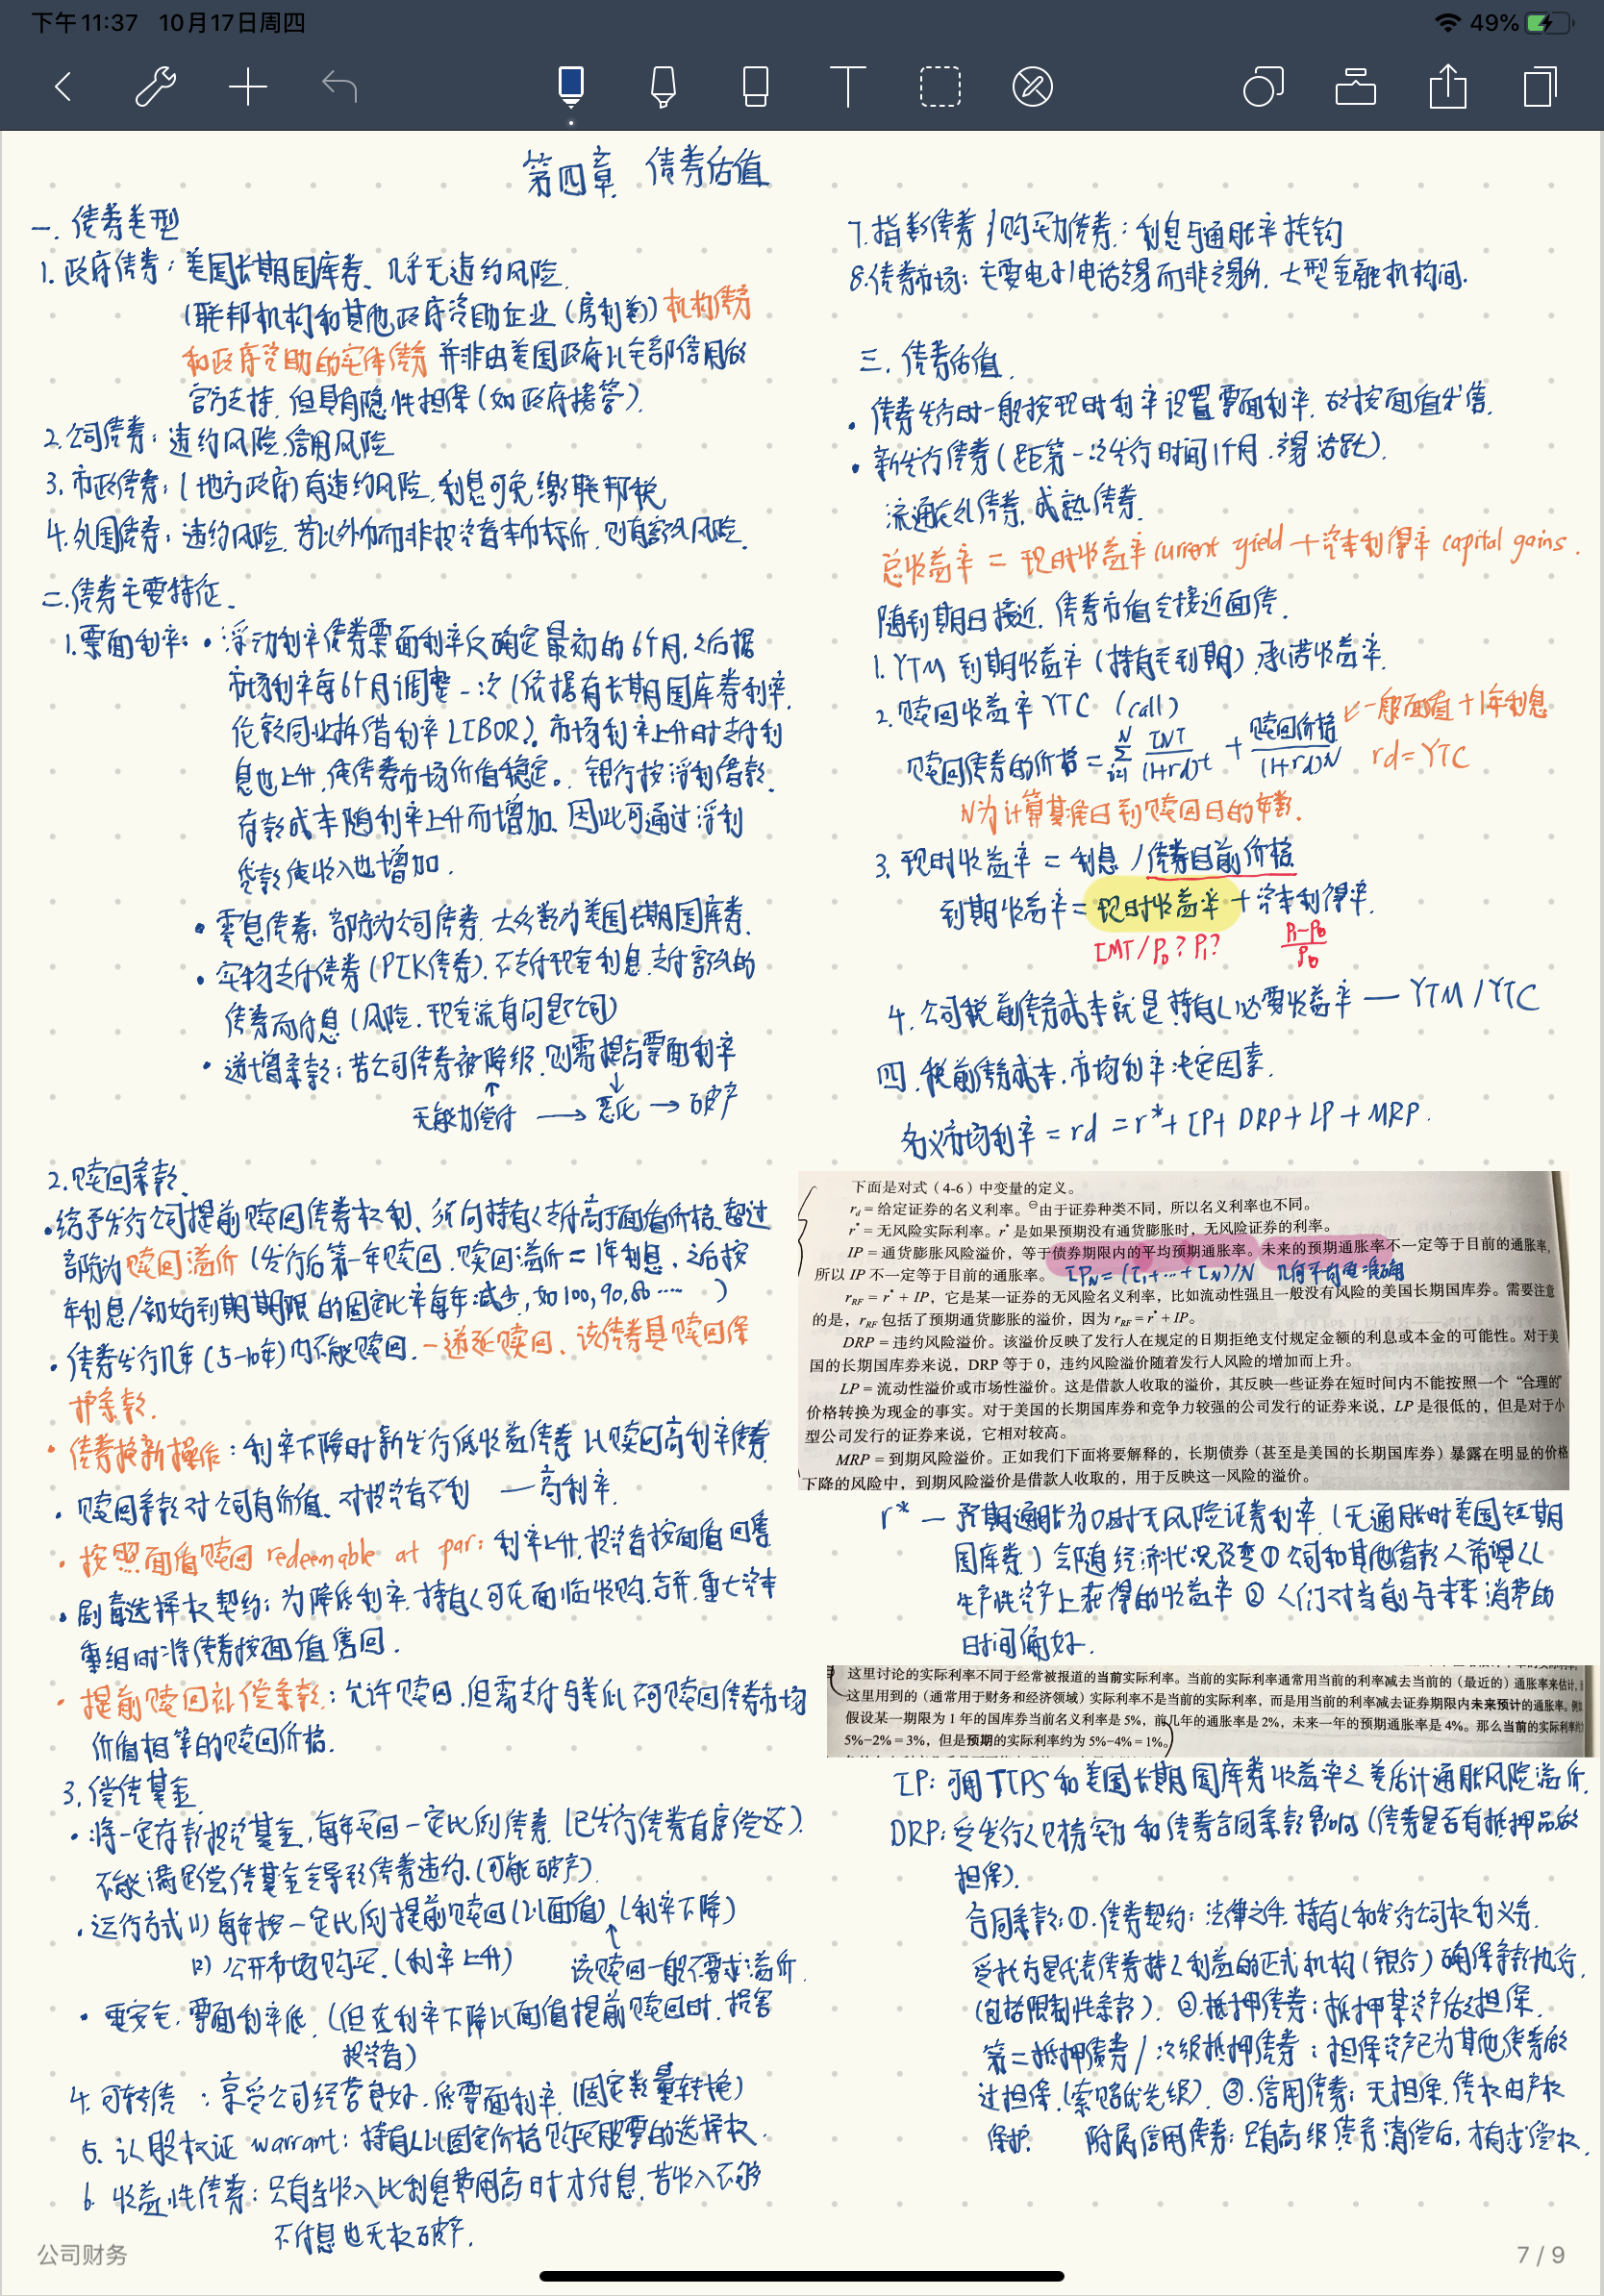 下午11:37 10月17日周四
49%
第四章 债券估值
一. 债券类型
1. 政府债券：美国长期国库券、几乎无违约风险.
(联邦机构和其他政府资助企业（房利美）) 机构债券
和政府资助的实体债券 并非由美国政府以全部信用做
官方支持, 但具有隐性担保（如政府接管）.
2. 公司债券：违约风险.信用风险
3. 市政债券：（地方政府）有违约风险, 利息可免缴联邦税
4. 外国债券：违约风险, 若以外币而非投资者本币标价, 则有额外风险.
二.债券主要特征.
1.票面利率：• 浮动利率债券票面利率仅确定最初的6个月, 之后据
市场利率每6个月调整一次（依据有长期国库券利率.
伦敦同业拆借利率LIBOR）. 市场利率上升时支付利
息也上升, 使债券市场价值稳定。银行按浮利借款.
存款成本随利率上升而增加. 因此可通过浮利
贷款使收入也增加.
• 零息债券：部分为公司债券, 大多数为美国长期国库券.
• 实物支付债券（PIK债券）. 不支付现金利息, 支付额外的
债券而付息（风险, 现金流有问题公司）
• 递增条款：若公司债券被降级, 则需提高票面利率
无能力偿付 → 恶化 → 破产
2.赎回条款.
•给予发行公司提前赎回债券权利、须向持有人支付高于面值价格, 超过
部分为赎回溢价（发行后第一年赎回, 赎回溢价＝1年利息, 之后按
年利息/初始到期期限 的固定比率每年减少, 如100, 90, 80…… ）
• 债券发行几年（5-10年）内不能赎回. —递延赎回、该债券具赎回保
护条款.
• 债券换新操作：利率下降时新发行低收益债券 以赎回高利率债券
• 赎回条款对公司有价值、对投资者不利 —高利率.
• 按照面值赎回 redeemable at par：利率上升, 投资者按面值回售
• 剧毒选择权契约：为降低利率, 持有人可在面临收购.合并.重大资本
重组时将债券按面值售回.
• 提前赎回补偿条款：允许赎回, 但需支付与类似不可赎回债券市场
价值相等的赎回价格.
3. 偿债基金
• 将一定存款投资基金, 每年买回一定比例债券.（已发行债券有序偿还）.
不能满足偿债基金会导致债券违约.（可能破产）
• 运行方式 (1) 每年按一定比例提前赎回（以面值）（利率下降）
(2) 公开市场购买.（利率上升） 该赎回一般不要求溢价.
• 更安全, 票面利率低.（但在利率下降以面值提前赎回时, 损害
投资者）
4. 可转债 ：享受公司经营良好. 低票面利率.（固定数量转换）
5. 认股权证 warrant：持有人以固定价格购买股票的选择权.
6. 收益性债券：只有当收入比利息费用高时才付息, 若收入不够
不付息也无权破产.
7.指数债券/购买力债券：利息与通胀率挂钩
8.债券市场：主要电子/电话交易而非交易所, 大型金融机构间.
三. 债券估值.
• 债券发行时一般按现时利率设置票面利率, 故按面值发售.
• 新发行债券（距第一次发行时间1个月.交易活跃）.
流通在外债券, 成熟债券.
总收益率 ＝ 现时收益率 current yield ＋资本利得率 capital gains.
随到期日接近, 债券市值会接近面值.
1. YTM 到期收益率（持有至到期）.承诺收益率.
2. 赎回收益率 YTC (call) ←一般面值＋1年利息
赎回债券的价格＝ N Σ i=1 INT/(1+rd)t + 赎回价格/(1+rd)N rd=YTC
N为计算基准日到赎回日的年数.
3. 现时收益率 ＝ 利息 / 债券目前价格
到期收益率＝现时收益率＋资本利得率.
INT/P0? P1? P1-P0/P0
4. 公司税前债务成本就是持有人必要收益率 — YTM/YTC
四. 税前债务成本. 市场利率决定因素.
名义市场利率 = rd = r*+ IP+ DRP+ LP + MRP.
下面是对式（4-6）中变量的定义。
rd＝给定证券的名义利率。㊀由于证券种类不同，所以名义利率也不同。
r*＝无风险实际利率。r*是如果预期没有通货膨胀时，无风险证券的利率。
IP＝通货膨胀风险溢价，等于债券期限内的平均预期通胀率。未来的预期通胀率不一定等于目前的通胀率，
所以 IP 不一定等于目前的通胀率。 IPN=(I1+…+IN)/N 几何平均更准确
rRF = r*+ IP，它是某一证券的无风险名义利率，比如流动性强且一般没有风险的美国长期国库券。需要注意
的是，rRF 包括了预期通货膨胀的溢价，因为 rRF = r*+ IP。
DRP＝违约风险溢价。该溢价反映了发行人在规定的日期拒绝支付规定金额的利息或本金的可能性。对于美
国的长期国库券来说，DRP 等于 0，违约风险溢价随着发行人风险的增加而上升。
LP＝流动性溢价或市场性溢价。这是借款人收取的溢价，其反映一些证券在短时间内不能按照一个“合理的”
价格转换为现金的事实。对于美国的长期国库券和竞争力较强的公司发行的证券来说，LP 是很低的，但是对于小
型公司发行的证券来说，它相对较高。
MRP＝到期风险溢价。正如我们下面将要解释的，长期债券（甚至是美国的长期国库券）暴露在明显的价格
下降的风险中，到期风险溢价是借款人收取的，用于反映这一风险的溢价。
r* — 预期通胀为0时无风险证券利率.（无通胀时美国短期
国库券）会随经济状况改变 ① 公司和其他借款人希望从
生产性资产上获得的收益率 ② 人们对当前与未来消费的
时间偏好.
这里讨论的实际利率不同于经常被报道的当前实际利率。当前的实际利率通常用当前的利率减去当前的（最近的）通胀率来估计，
这里用到的（通常用于财务和经济领域）实际利率不是当前的实际利率，而是用当前的利率减去证券期限内未来预计的通胀率。例如
假设某一期限为 1 年的国库券当前名义利率是 5%，前几年的通胀率是 2%，未来一年的预期通胀率是 4%。那么当前的实际利率约
5%−2%＝3%，但是预期的实际利率约为 5%−4%＝1%。
IP：可用TIPS和美国长期国库券收益率之差估计通胀风险溢价.
DRP：受发行人财务实力和债券合同条款影响（债券是否有抵押品做
担保）.
合同条款：①. 债券契约：法律文件, 持有人和发行公司权利义务.
受托方是代表债券持人利益的正式机构（银行）确保条款执行.
（包括限制性条款）. ②抵押债券：抵押某资产做担保.
第二抵押债券/次级抵押债券：担保资产已为其他债券做
过担保.（索赔优先级）. ③.信用债券：无担保, 债权由产权
保护. 附属信用债券：只有高级债务清偿后, 才有求偿权.
公司财务
7 / 9